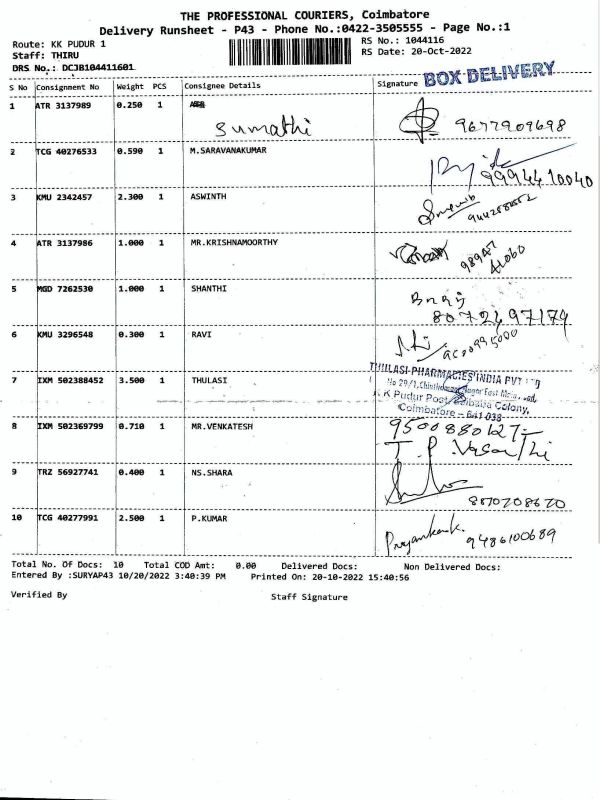 THE PROFESSIONAL COURIERS, Coimbatore
Delivery Runsheet - P43 - Phone No.:0422-3505555 - Page No.:1
Route: KK PUDUR 1 RS No.: 1044116
Staff: THIRU RS Date: 20-Oct-2022
DRS No.: DCJB104411601
BOX DELIVERY
S No Consignment No Weight PCS Consignee Details Signature
1 ATR 3137989 0.250 1
Sumathi 9677909698
2 TCG 40276533 0.590 1 M.SARAVANAKUMAR
9994410040
3 KMU 2342457 2.300 1 ASWINTH
4 ATR 3137986 1.000 1 MR.KRISHNAMOORTHY
5 MGD 7262530 1.000 1 SHANTHI
6 KMU 3296548 0.300 1 RAVI
THULASI PHARMACIES INDIA PVT
7 IXM 502388452 3.500 1 THULASI
No 29/1, Nagar East
K K Pudur Post, Saibaba Colony,
Coimbatore - 641 038
8 IXM 502369799 0.710 1 MR.VENKATESH 9500880127
T.P. Vasanthi
9 TRZ 56927741 0.400 1 NS.SHARA
8070208670
10 TCG 40277991 2.500 1 P.KUMAR
9486100689
Total No. Of Docs: 10 Total COD Amt: 0.00 Delivered Docs: Non Delivered Docs:
Entered By :SURYAP43 10/20/2022 3:40:39 PM Printed On: 20-10-2022 15:40:56
Verified By Staff Signature